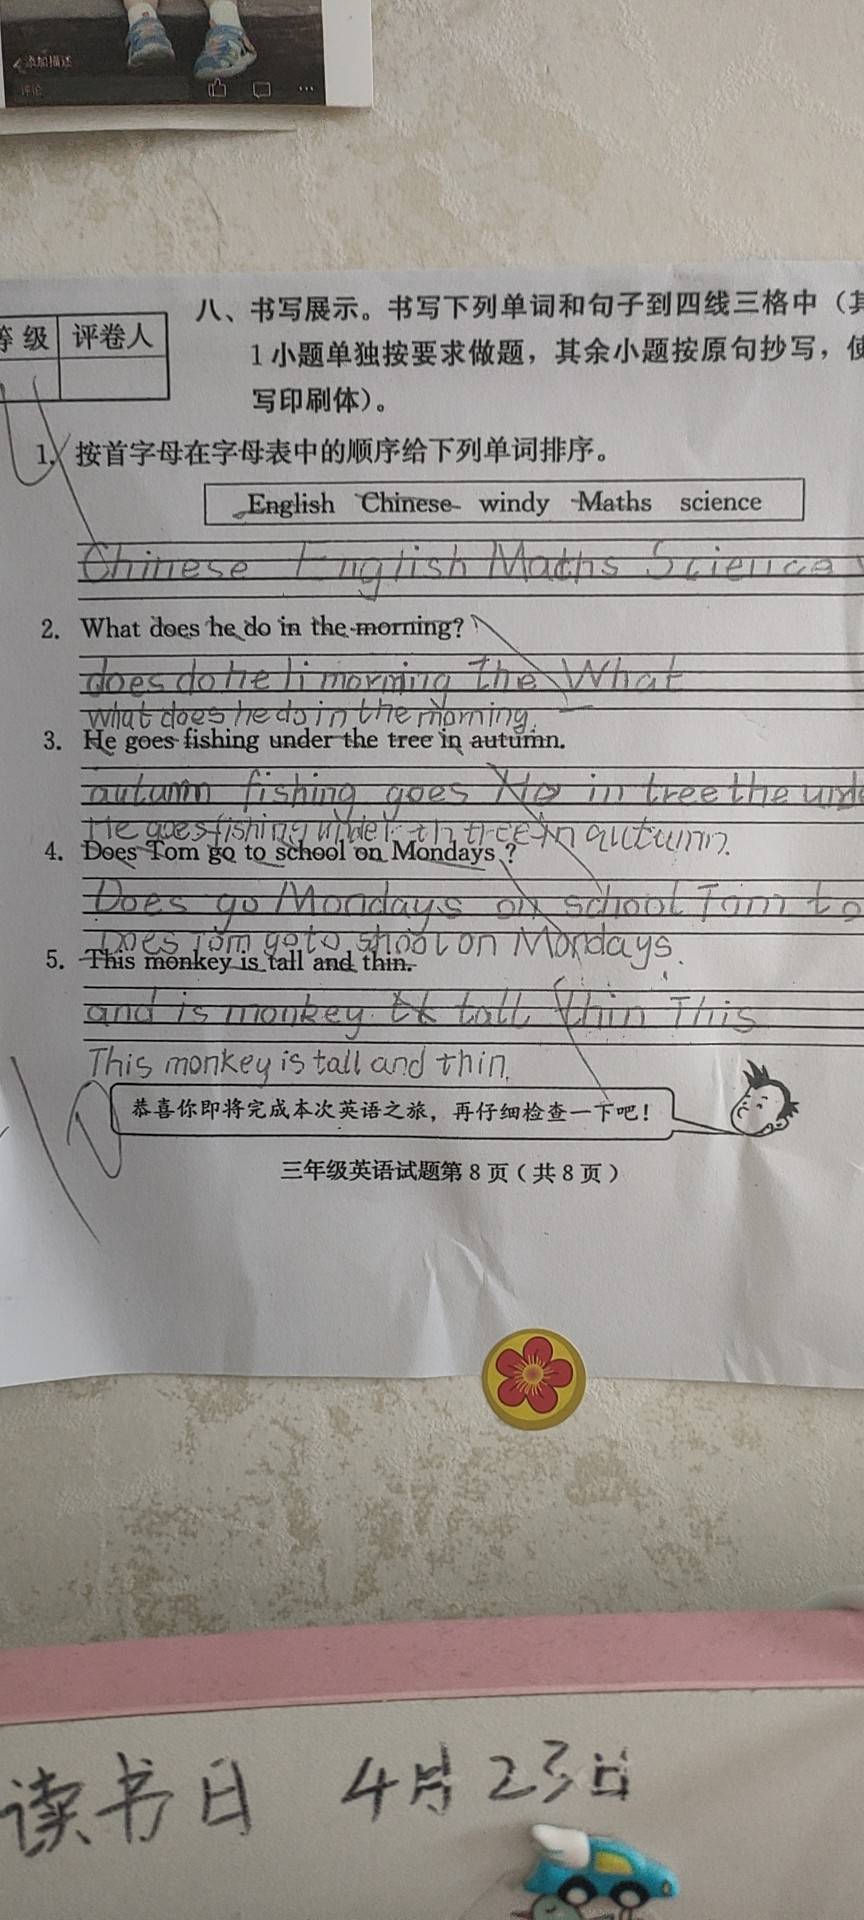 添加描述
评论
八、书写展示。书写下列单词和句子到四线三格中（其
1小题单独按要求做题，其余小题按原句抄写，使
写印刷体）。
等级 评卷人
1. 按首字母在字母表中的顺序给下列单词排序。
English Chinese windy Maths science
Chinese English Maths Science
2. What does he do in the morning?
does do he li morning the What
What does he do in the morning.
3. He goes fishing under the tree in autumn.
autumn fishing goes He in tree the unde
He goes fishing under th tree in autumn.
4. Does Tom go to school on Mondays?
Does go Mondays on school Tom to
Does Tom go to shool on Mondays.
5. This monkey is tall and thin.
and is monkey tall thin This
This monkey is tall and thin.
恭喜你即将完成本次英语之旅，再仔细检查一下吧！
三年级英语试题第8页（共8页）
读书日 4月23日